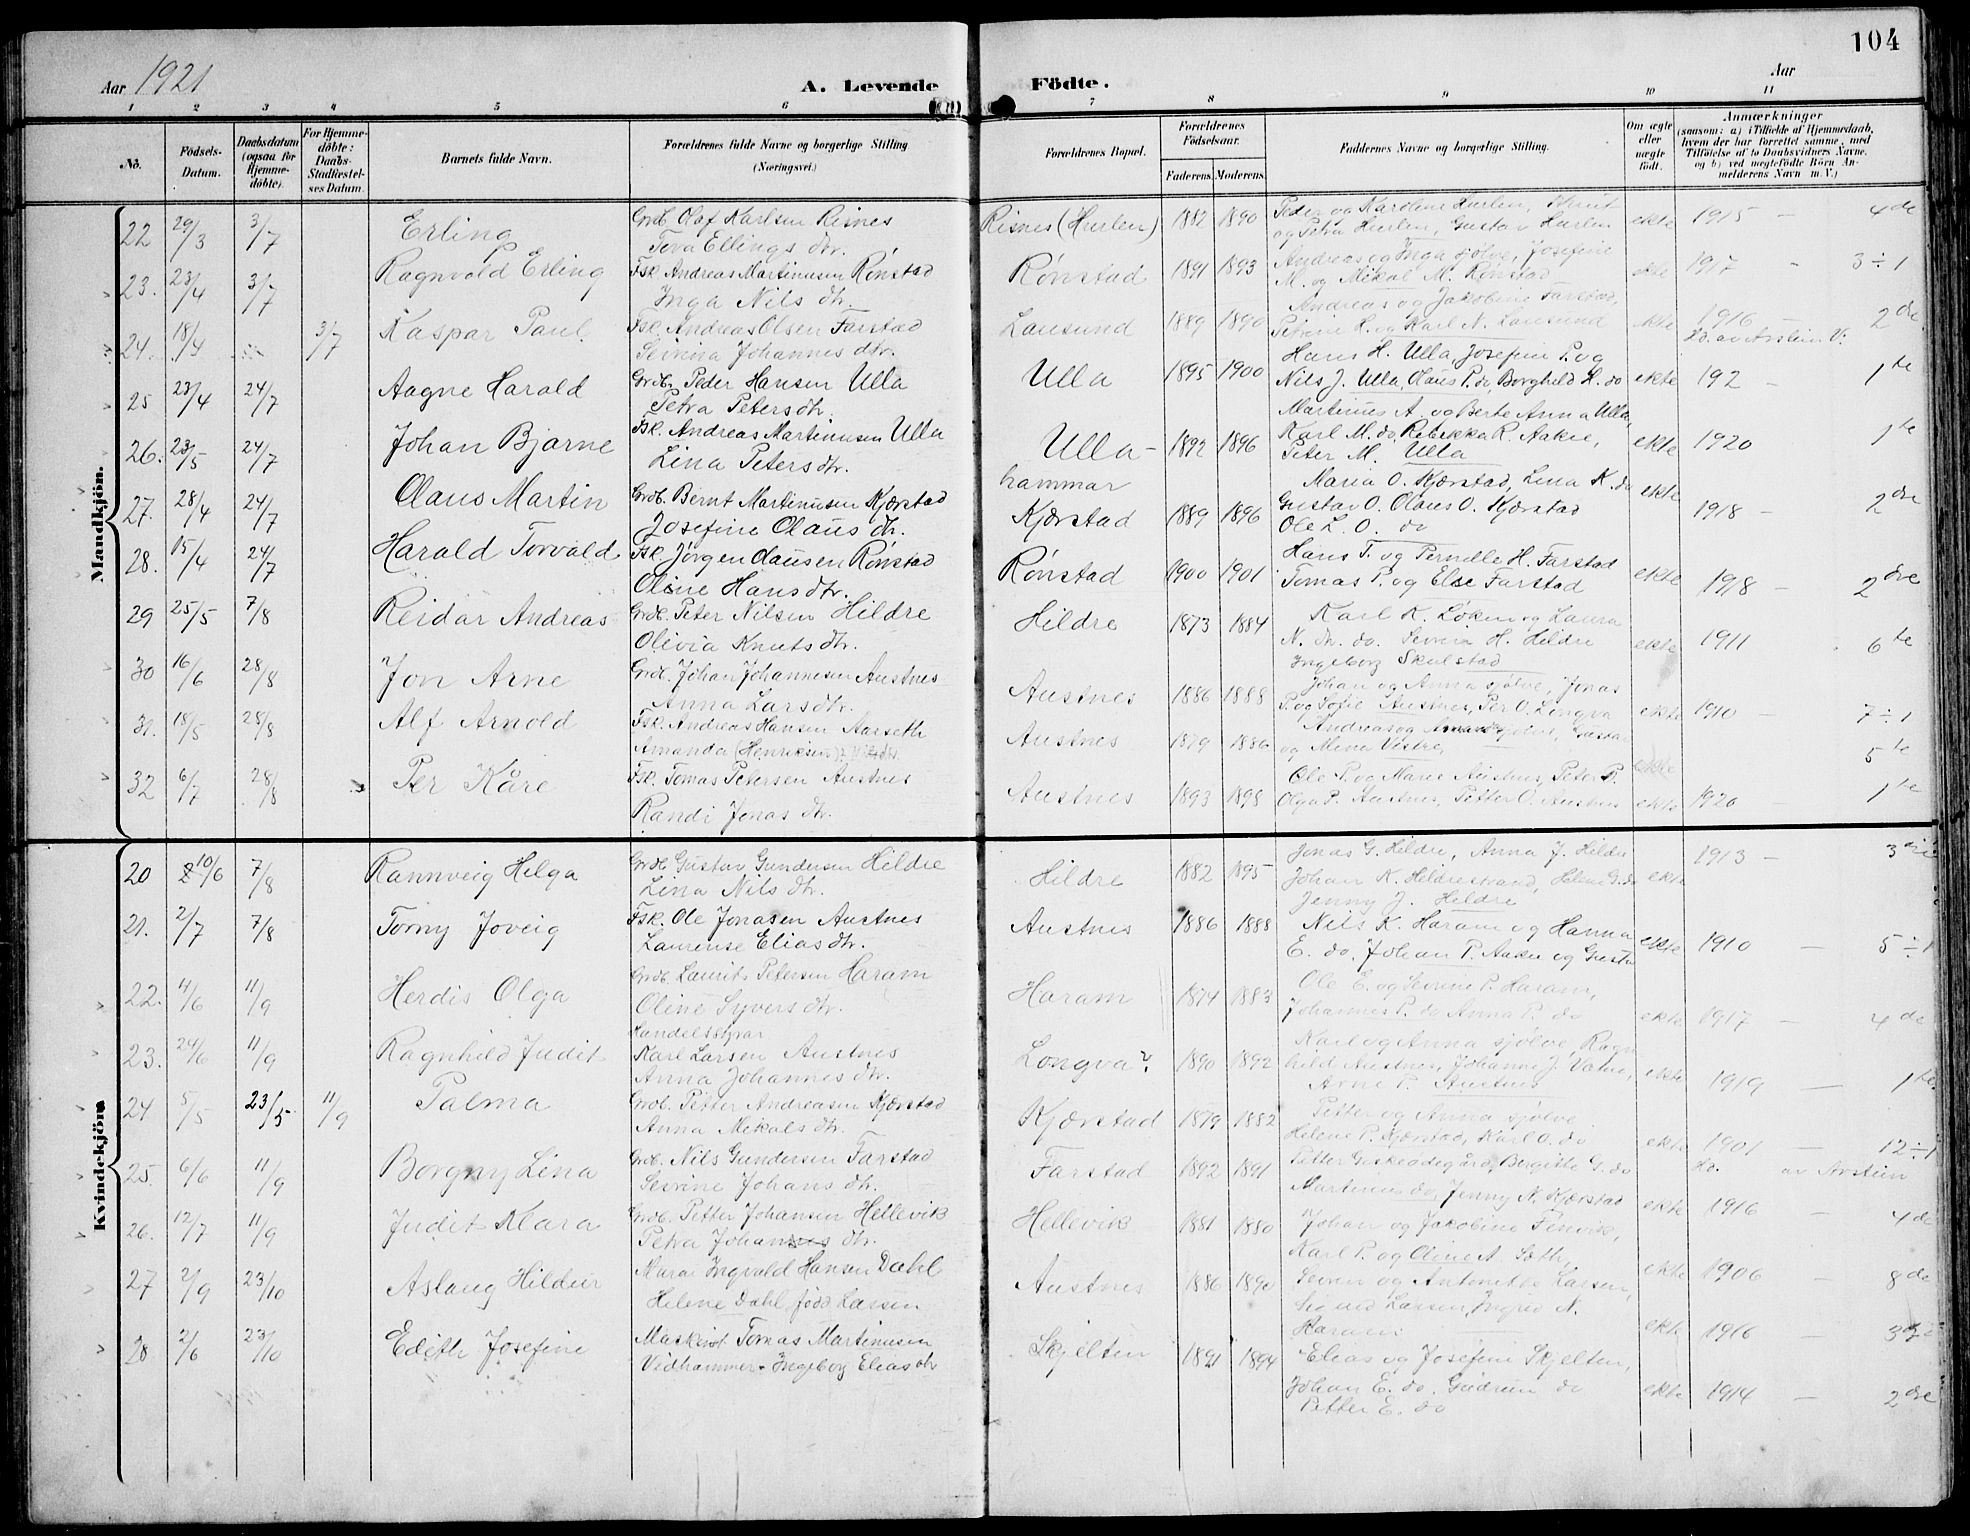 104
Aar 1921
A. Levende Födte.
Aar
1 2 3 4 5 6 7 8 9 10 11
No.
Födsels-Datum.
Daabsdatum (ogsaa for Hjemme-döbte).
For Hjemme-döbte: Daabs-Stadfæstel-ses Datum.
Barnets fulde Navn.
Forældrenes fulde Navne og borgerlige Stilling (Næringsvei.)
Forældrenes Bopæl.
Forældrenes Födselsaar.
Faderens. Moderens.
Faddernes Navne og borgerlige Stilling.
Om ægte eller uægte født.
Anmærkninger
(saasom: a) i Tilfælde af Hjemmedaab, hvem der har forrettet samme, med Tilföielse af to Daabsvidners Navne, og b) ved uegtefödte Börn An-melderens Navn m. V.)
Mandkjön.
22 29/3 3/7 Erling Grdb. Olaf Karlsen Risnes
Tova Ellings dtr. Risnes (Hurlen) 1882 1890 Peder og Karoline Hurlen,
og Petra Hurlen, Gustav Hurlen ekte 1915 - 4de
23. 23/4 3/7 Ragnvald Erling Fsk. Andreas Martinusen Rønstad
Inga Nils dtr. Rønstad 1891 1893 Andreas og Inga sjølve, Josefine
M. og Mikal M. Rønstad ekte 1917 3÷1
24. 18/4 3/7 Kaspar Paul Fsk. Andreas Olsen Farstad
Sevrina Johannes dtr. Lausund 1889 1890 Andreas og Jakobine Farstad,
Petrine H. og Karl N. Lausund ekte 1916 - 2dre
Hd. av Arstein V.
25 23/4 24/7 Aagne Harald Grdb. Peder Hansen Ulla
Petra Petersdtr. Ulla 1895 1900 Hans H. Ulla, Josefine P. og
Nils J. Ulla, Olaus P. do, Borghild H. do ekte 192 - 1te
26. 23/5 24/7 Johan Bjarne Fsk. Andreas Martinusen Ulla
Lina Petersdtr. Ulla-hammar 1892 1896 Martinus A. og Berte Anna Ulla,
Karl M. do, Rebekka R. Aakre,
Peter M. Ulla ekte 1920 1te
27. 28/4 24/7 Olaus Martin Grdb. Bernt Martinusen Kjærstad
Josefine Olaus dtr. Kjærstad 1889 1896 Maria O. Kjærstad, Lina K. do
Gustav O. Olaus O. Kjærstad
Ole L. O. do ekte 1918 - 2dre
28. 15/4 24/7 Harald Torvald Fsk. Jørgen Clausen Rønstad
Oline Hansdtr. Rønstad 1900 1901 Hans T. og Pernille H. Farstad
Tomas P. og Else Farstad ekte 1918 - 2dre
29 25/5 7/8 Reidar Andreas Grdb. Peter Nilsen Hildre
Olivia Knutsdtr. Hildre 1873 1884 Karl K. Løken og Laura
N. dtr. do. Sevrin H. Hildre
Ingeborg Skulstad ekte 1911 6te
30 16/6 28/8 Jon Arne Grdb. Johan Johannesen Austnes
Anna Larsdtr. Austnes 1886 1888 Johan og Anna sjølve, Jonas
P. og Sofie Austnes, Per O. Longva ekte 1910 - 7÷1
31. 18/5 28/8 Alf Arnold Fsk. Andreas Hansen Aarseth
Amanda (Henriksen) Austnes 1879 1886 Andreas og Amanda sjølve, Gustav
og Mena Vestre, ekte 5te
32 6/7 28/8 Per Kåre Fsk. Tomas Petersen Austnes
Randi Jonas dtr. Austnes 1893 1898 Ole P. og Marie Austnes, Peter P.
Olga P. Austnes, Petter O. Austnes ekte 1920 - 1te
Kvindekjön
20 10/6 7/8 Rannveig Helga Grdb Gustav Gundersen Hildre
Lina Nils dtr. Hildre 1882 1895 Jonas G. Hildre, Anna J. Hildre
Johan K. Hildrestrand, Helene G. do
Jenny J. Hildre ekte 1913 - 3die
21. 2/7 7/8 Torny Joveig Fsk. Ole Jonasen Austnes
Laurense Elias dtr. Austnes 1886 1888 Nils K. Haram og Hanna
E. do, Johan P. Aakre og Gusta ekte 1910 - 5÷1
22. 4/6 11/9 Herdis Olga Grdb. Laurits Petersen Haram
Oline Syvers dtr. Haram 1874 1883 Ole E. og Sevrine P. Haram,
Johannes P. do Anna P. do ekte 1917 - 4de
23. 24/6 11/9 Ragnhild Judit Handelsstyrar
Karl Larsen Austnes
Anna Johannes dtr. Longva 1890 1892 Karl og Anna sjølve Ragn
hild Austnes, Johanne J. Vatne,
Arne P. Austnes ekte 1919 - 1te
24 5/5 23/5 11/9 Palma Grdb. Petter Andreasen Kjærstad
Anna Mekals dtr. Kjærstad 1879 1882 Petter og Anna sjølve
Helene P. Kjærstad, Karl O. do ekte 1901 - 12÷1
Hd. av Arstein
25. 6/6 11/9 Borgny Lina Grdb. Nils Gundersen Farstad
Sevrine Johans dtr. Farstad 1892 1891 Petter Giskeødegård, Bergitte G. do
Martinus do, Jenny N. Kjærstad ekte 1916 - 4de
26. 12/7 11/9 Judit Klara Grdb. Petter Johansen Hellevik
Petra Johannes dtr. Hellevik 1881 1880 Johan og Jakobine Finvik,
Karl P. og Oline A. Sæth, ekte 1906 - 8de
27 2/9 23/10 Aslaug Hildur Murar Ingvald Hansen Dahl
Helene Dahl, født Larsen Austnes 1886 1890 Sevrin og Antonette Larsen,
Sigurd Larsen, Ingrid N.
Haram ekte 1916 - 3die
28 2/6 23/10 Edith Josefine Maskinst Tomas Martinusen
Vidhammer - Ingeborg Elias dtr Skjelten 1891 1894 Elias og Josefine Skjelten,
Johan E. do. Gudrun do
Petter E. do ekte 1914 - 2dre